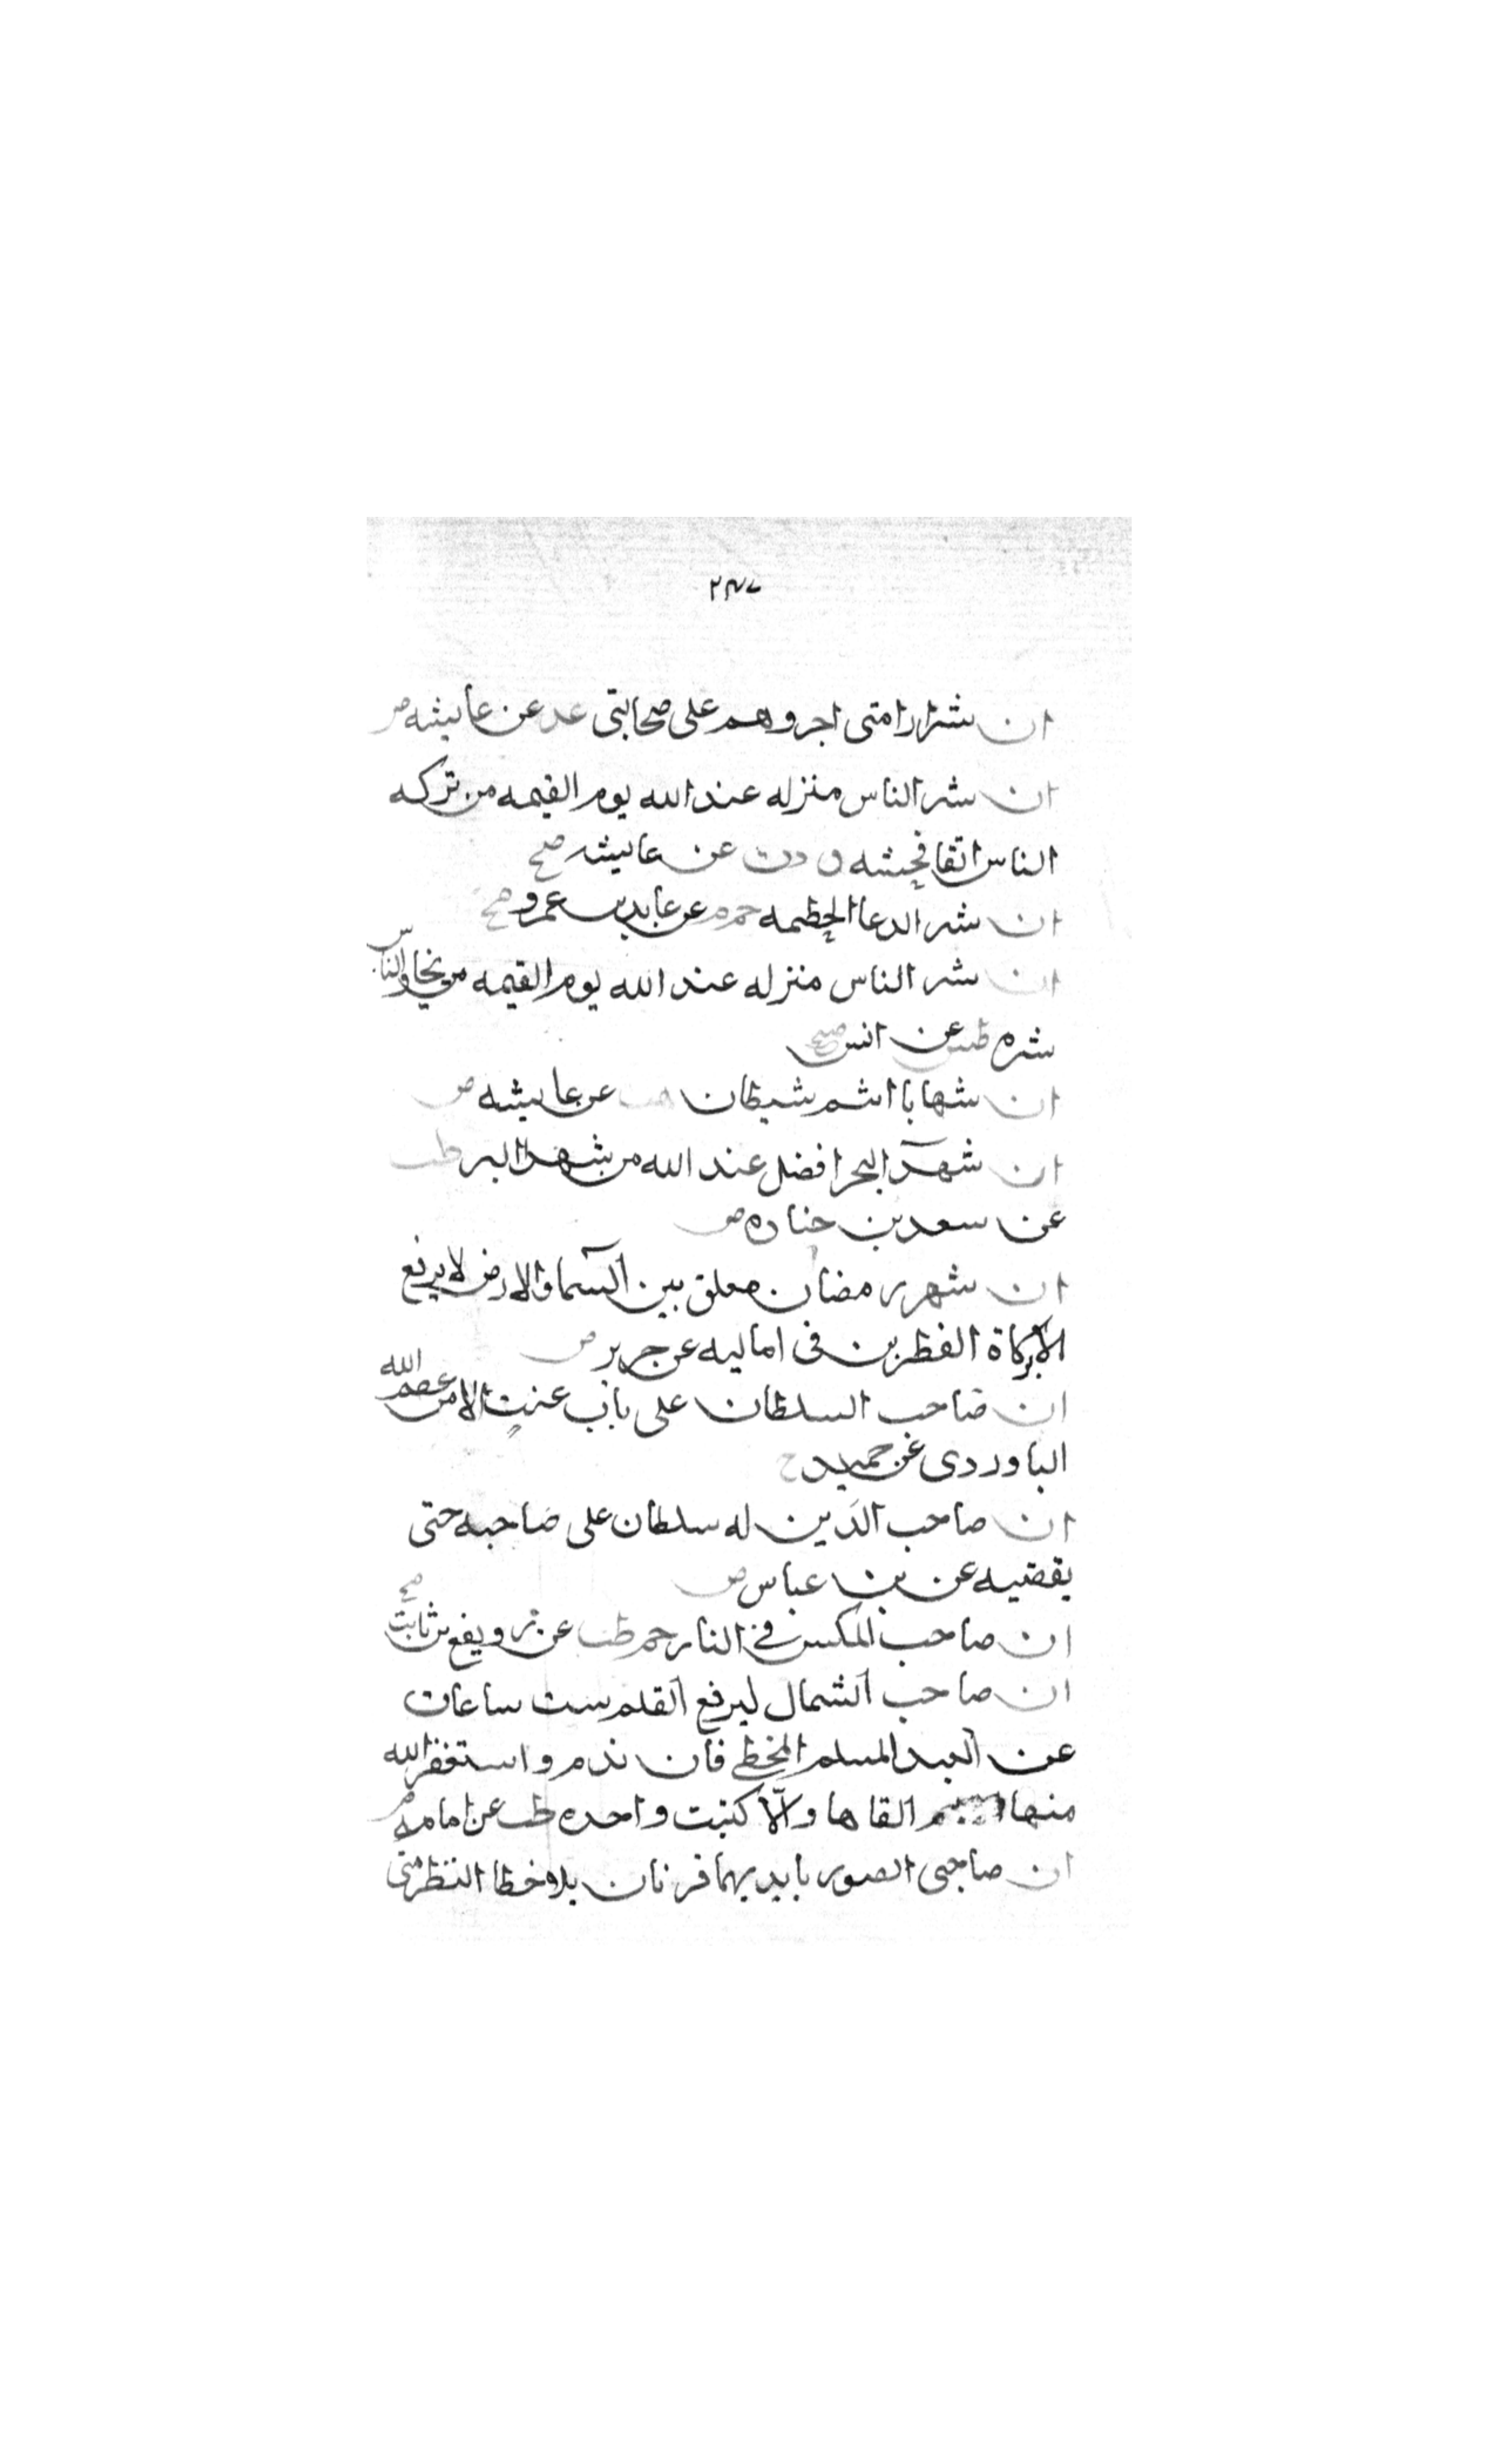 ٢٣٧
ان شرار امتى اجروهم على صحابتى عد عن عايشه ض
ان شر الناس منزله عند الله يوم القيمه من تركه
الناس اتقا فحشه ق د ت عن عايشه صح
ان شر الدعا الحطمه حم م عن عايد بن عمرو صح
ان شر الناس منزله عند الله يوم القيمه من يخاف الناس
شره طس عن انس صح
ان شهابا اسم شيطان هب عن عايشه ض
ان شهدآ البحر افضل عند الله من شهدا البر طب
عن سعد بن جناده ض
ان شهر رمضان معلق بين السمآ والارض لا يرفع
الا بزكاة الفطر بن فى اماليه عن جرير ض
ان صاحب السلطان على باب عنت الا من عصم الله
الباوردى عن حميد ح
ان صاحب الدين له سلطان على صاحبه حتى
يقضيه عن بن عباس ض
ان صاحب المكس فى النار حم طب عن رويفع بن ثابت صح
ان صاحب الشمال ليرفع القلم ست ساعات
عن العبد المسلم المخطى فان ندم واستغفر الله
منها القاها والّا كتبت واحده طب عن امامه ض
ان صاحبى الصور بايديهما قرنان يلاحظا النظر متى